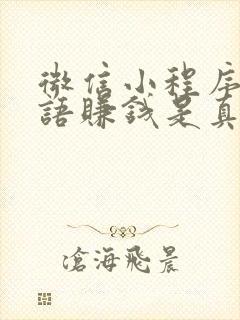 微信小程序
語賺錢是真
滄海飛晨